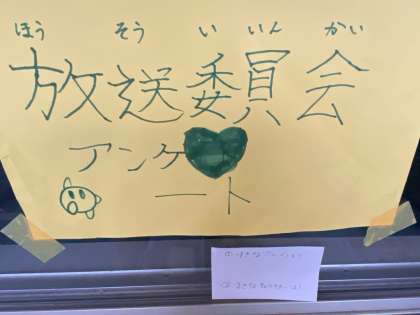 ほう そう い いん かい
放送委員会
アンケ
ート